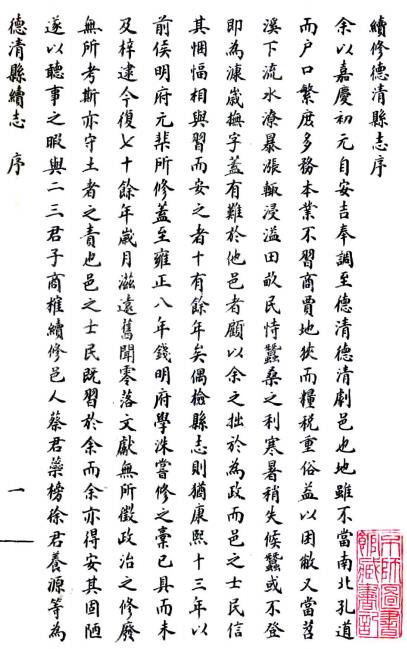 續修德清縣志序
余以嘉慶初元自安吉奉調至德清德清劇邑也地雖不當南北孔道
而户口繁庶多務本業不習商賈地狹而糧税重俗益以困敝又當苕
溪下流水潦暴漲輙浸溢田畝民恃蠶桑之利寒暑稍失候蠶或不登
即為漮嵗撫字葢有難於他邑者顧以余之拙於為政而邑之士民信
其悃愊相與習而安之者十有餘年矣偶檢縣志則猶康熙十三年以
前侯明府元棐所修葢至雍正八年錢明府學洙嘗修之藁已具而未
及梓逮今復七十餘年嵗月滋遠舊聞零落文獻無所徵政治之修廢
無所考斯亦守土者之責也邑之士民既習於余而余亦得安其固陋
遂以聽事之暇與二三君子商搉續修邑人蔡君藥榜徐君養源等為
德清縣續志 序 一